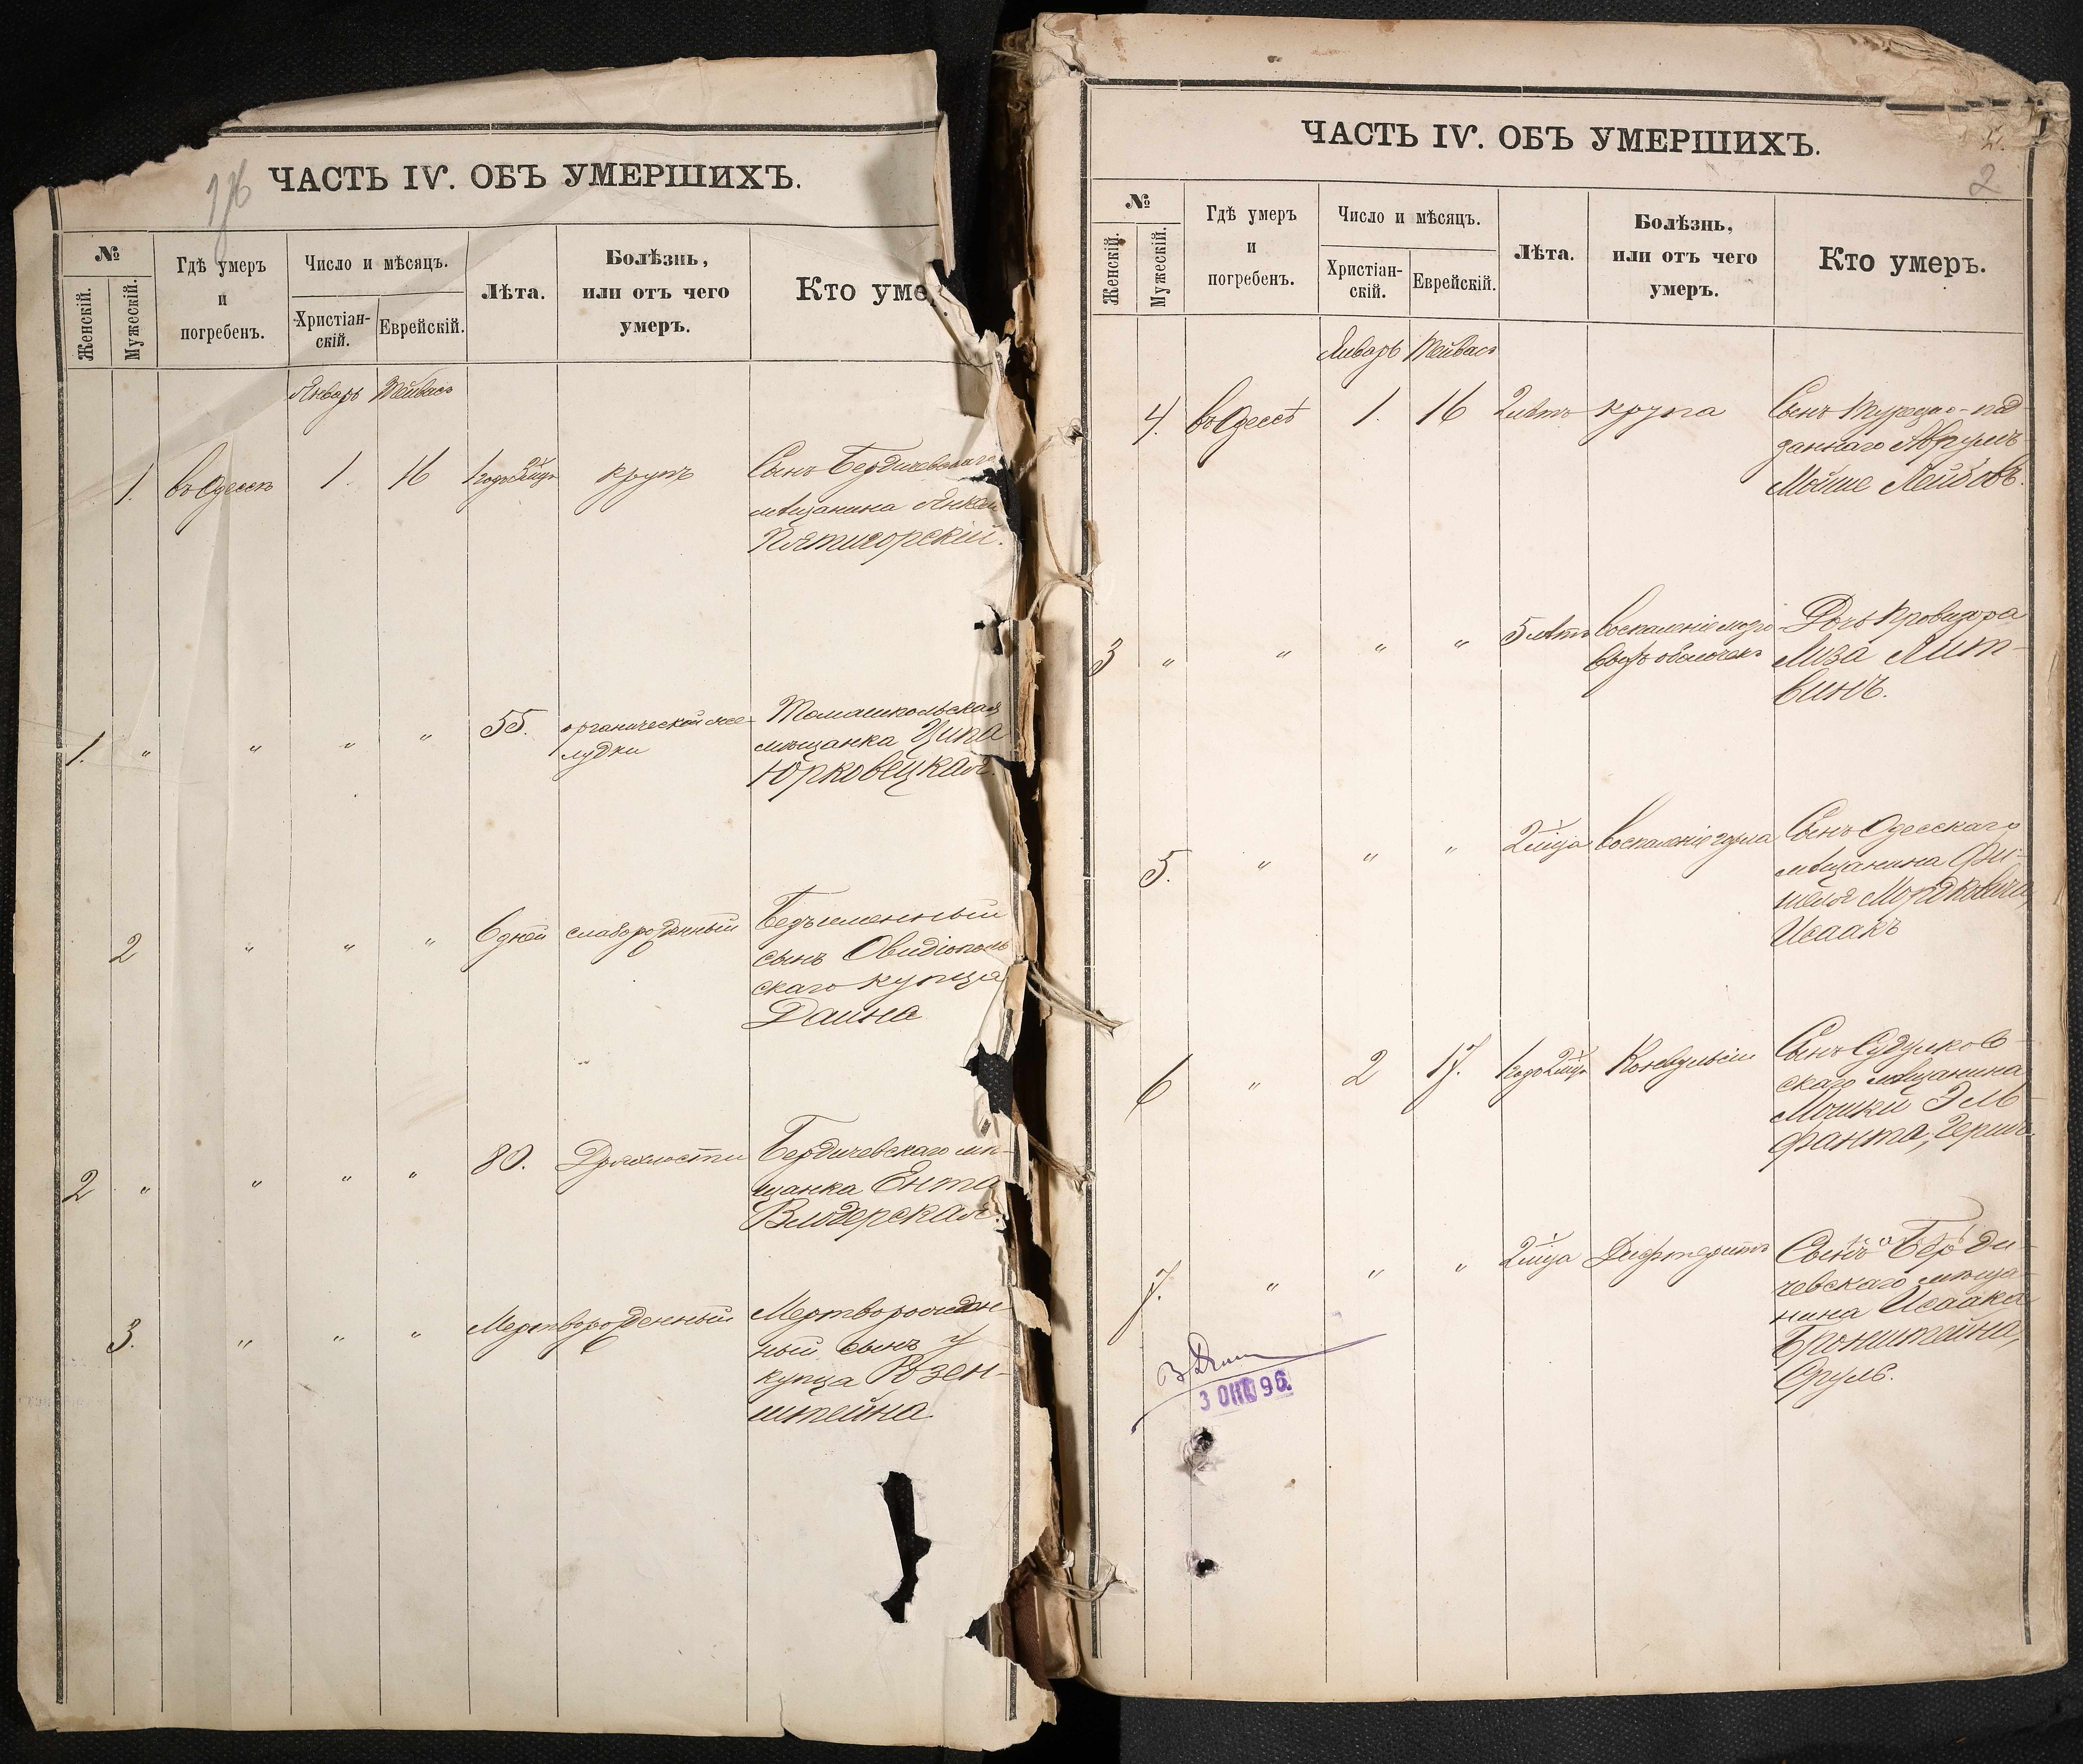 ЧАСТЬ IV. ОБЪ УМЕРШИХЪ.
№
Женскій.
Мужескій.
Гдѣ умеръ
и
погребенъ.
Число и мѣсяцъ.
Христіан-
скій.
Еврейскій.
Лѣта.
Болѣзнь,
или отъ чего
умеръ.
Кто уме
Январь Тейвасъ
1. въ Одессѣ 1. 16 крупъ Сынъ Бердичевскаго
мѣщанина Янкель
Пятигорскій.
1. " " " " 55. органической же- Томашпольская
лудки мѣщанка Ципа
Юрковецкая.
2 " " " 6 дней слаборожденный Безъименный
сынъ Овидіополь
скаго купца
Даина
2 " " " " 80. Дряхлости Бердичевскаго мѣ-
щанка Ента
3. " " " Мертворожденный Мертворожден-
ный сынъ у
купца Розен-
штейна
ЧАСТЬ IV. ОБЪ УМЕРШИХЪ.
2
№
Женскій.
Мужескій.
Гдѣ умеръ
и
погребенъ.
Число и мѣсяцъ.
Христіан-
скій.
Еврейскій.
Лѣта.
Болѣзнь,
или отъ чего
умеръ.
Кто умеръ.
Январь Тейвасъ
4. въ Одессѣ 1. 16 2 лѣтъ крупа Сынъ турецко-под-
даннаго Аврумъ
Мойше Лейбовъ.
3 " " " " 5 лѣтъ Воспаленіе мозго Дочь провизора
выхъ оболочекъ Лиза Лит-
винъ.
5. " " " 2 м-ца Воспаленіе горла Сынъ Одесскаго
мѣщанина Фи-
шеля Мордковича,
Исаакъ
6 " 2 17. 1 годъ 2 м-ца Конвульсіи Сынъ Судулков-
скаго мѣщанина
Мошки Эль-
фанта, Герш
7. " " " 2 м-ца Дифтеритъ Сынъ Берди-
чевскаго мѣща-
нина Исаака
Бронштейна,
Сруль.
3 ОКТ 96.